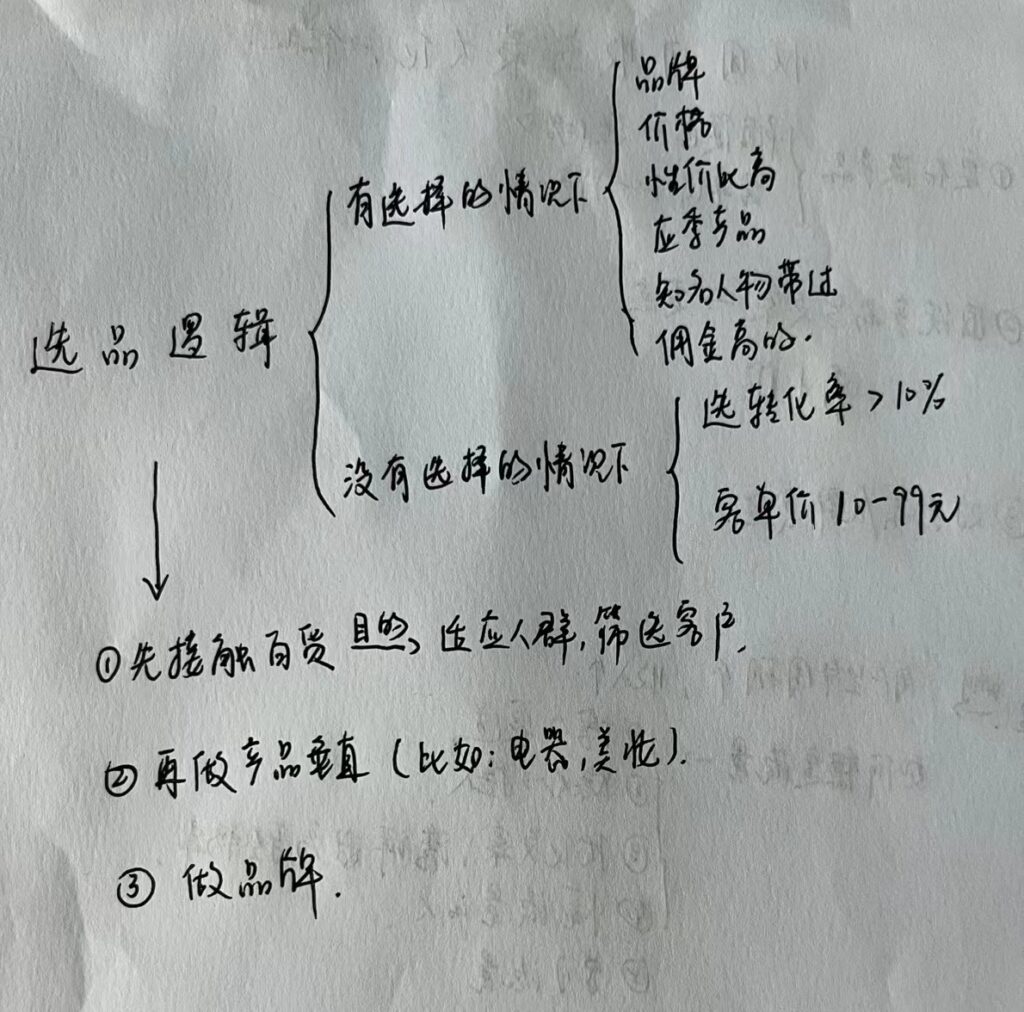 选品逻辑
有选择的情况下
品牌
价格
性价比高
应季产品
知名人物带过
佣金高的.
没有选择的情况下
选转化率>10%
客单价10-99元
①先接触百货 目的、适应人群,筛选客户.
②再做产品垂直(比如:电器,美妆).
③做品牌.